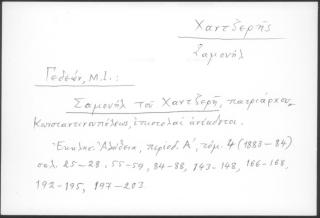 Χαντζερῆς
Σαμουὴλ
Γεδεών, Μ.Ι.:
Σαμουὴλ τοῦ Χαντζερῆ, πατριάρχου
Κωνσταντινουπόλεως, ἐπιστολαὶ ἀνέκδοτοι.
Ἐκκλησ. Ἀλήθεια, περίοδ. Α', τόμ. 4 (1883-84)
σελ. 25-28. 55-59, 84-88, 143-148, 166-168,
192-195, 197-203.